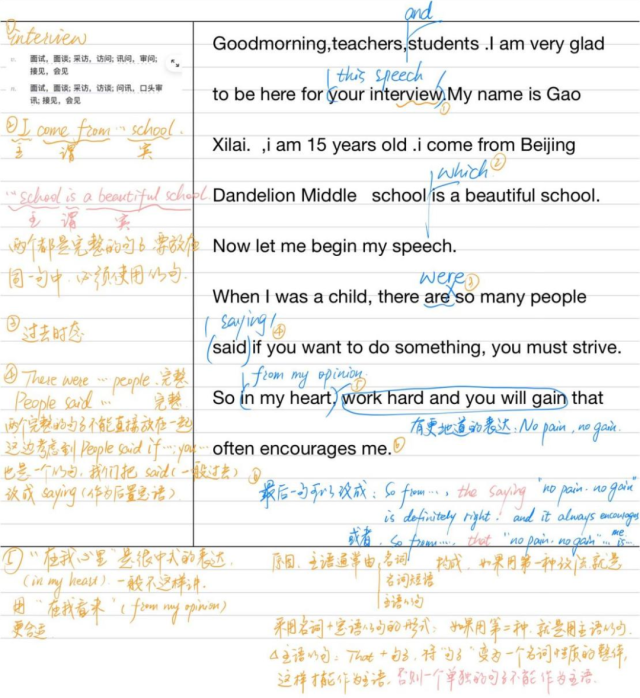 and
① interview
n. 面试，面谈; 采访，访问; 讯问，审问;
接见，会见
v. 面试，面谈; 采访，访谈; 问讯，口头审
讯; 接见，会见
Goodmorning,teachers,students .I am very glad
this speech
to be here for your interview.My name is Gao
①
② I come from … school.
主 谓 宾
Xilai. ,i am 15 years old .i come from Beijing
which ②
… school is a beautiful school.
主 谓 宾
Dandelion Middle school is a beautiful school.
两个都是完整的句子 要放在
同一句中 必须使用从句.
Now let me begin my speech.
were ③
When I was a child, there are so many people
③ 过去时态
saying ④
said if you want to do something, you must strive.
④ There were … people. 完整
People said … 完整
两个完整的句子不能直接放在一起
这边考虑到 People said if … you …
也是一个从句. 我们把 said (一般过去)
改成 saying (作为后置定语)
from my opinion
⑤
So in my heart, work hard and you will gain that
有更地道的表达: No pain, no gain.
often encourages me.⑥
⑥ 最后一句可以改成: So from …, the saying "no pain. no gain"
is definitely right. and it always encourages me
或者. so from …, that "no pain. no gain" … is …
⑤ "在我心里" 是很中式的表达
(in my heart) 一般不这样讲.
用 "在我看来" (from my opinion)
更合适
原因. 主语通常由 名词 构成, 如果用第一种改法 就是
名词短语
主语从句
采用名词 + 定语从句的形式; 如果用第二种. 就是用主语从句.
△ 主语从句: That + 句子, 将 "句子" 变为一个名词性质的整体,
这样才能作为主语. 否则一个单独的句子不能作为主语.